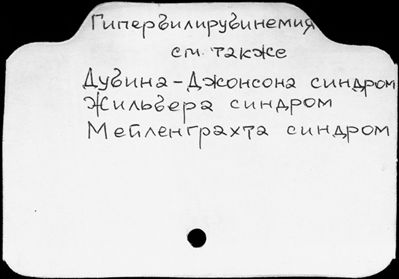 Гипербилирубинемия
см. также
Дубина-Джонсона синдром
Жильбера синдром
Мейленграхта синдром